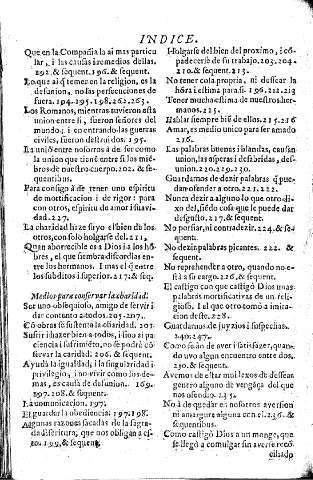 INDICE.
Que en la Compañia la ai mas particu
lar, i las causas i remedios dellas.
192. & sequent. 196. & sequent.
Lo que ai q̃ temer en la religion, es la
desunion, no las persecuciones de
fuera. 194. 195. 198. 262. 263.
Los Romanos, mientras tuvieron esta
union entre si, fueron señores del
mundo; i en entrando las guerras
civiles, fueron destruidos. 195.
La uniõ entre nosotros à de ser como
la union que tiene entre si los miẽ-
bros de nuestro cuerpo. 202. & se-
quentibus.
Para consigo à de tener uno espiritu
de mortificacion i de rigor: para
con otros, espiritu de amor i suavi-
dad. 227.
La charidad hize suyo el bien de los
otros, con solo holgarse del. 211.
Quan aborrecible es a Dios i a los hõ-
bres, el que siembra discordias en-
tre los hermanos. I mas el q̃ entre
los subditos i superior. 217. & seq.
Medios para conservar la charidad.
Ser uno obsequioso, amigo de servir i
dar contento a todos. 205. 207.
Cõ obras se sustenta la charidad. 203
Sufrir i hazer bien a todos, i sino ai pa
ciencia i sufrimiẽto, no se podrà cõ
servar la caridad. 206. & sequent.
Ayuda la igualdad, i la singularidad i
privilegio, i no vivir como los de-
mas, es causa de desunion. 169.
197. 208. & sequent.
La comunicacion. 197.
El guardar la obediencia: 197. 198.
Algunas razones sacadas de la sagra-
da escritura, que nos obligan a es-
to. 199. & sequent.
Holgarse del bien del proximo, i cõ-
padecerse de su trabajo. 203. 204.
210. & sequent. 213.
No tener cola propria, ni desear la
hõra i estima para si. 196. 212. 213
Tener mucha estima de nuestros her-
manos. 225.
Hablar siempre biẽ de ellos. 215. 216
Amar, es medio unico para ser amado
216.
Las palabras buenas i blandas, causan
union, las asperas i desabridas, des-
union. 220. 229. 230.
Guardarnos de dezir palabras q̃ pue-
dan ofender a otro. 221. 222.
Nunca dezir a alguno lo que otro di-
xo del, siẽdo cosa que le puede dar
desgusto. 217. & sequent.
No porfiar, ni contradezir. 224. & se-
quent.
No dezir palabras picantes. 222. &
sequent.
No reprehender a otro, quando no e-
stà a su cargo. 226. & sequent.
El castigo con que castigò Dios unas
palabras mortificativas de un reli-
gioso. I el que otro tomò a imita-
cion deste. 228.
Guardarnos de juyzios i sospechas.
240. 247.
Como se àn de aver i satisfazer, quan-
do uvo algun encuentro entre dos.
230. & sequent.
Avemos de estar mui lexos de dessear
gentro alguno de vengãça del que
nos ofendio. 235.
No à de quedar en nosotros aversion
ni amargura alguna con el. 236. &
sequentibus.
Como castigò Dios a un monge, que
se llegò a comulgar sin averse reco-
ciliado